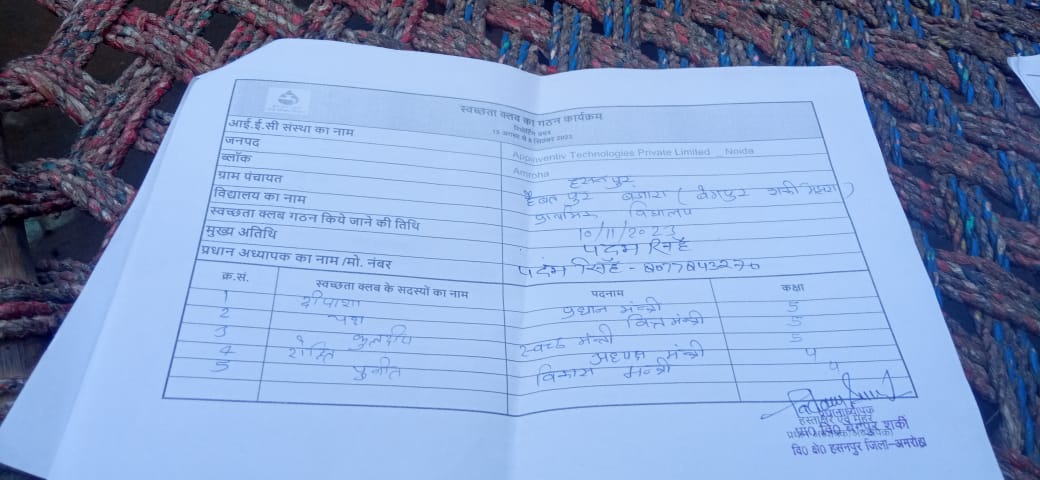 स्वच्छता क्लब का गठन कार्यक्रम
आई.ई.सी संस्था का नाम Appinventiv Technologies Private Limited Noida
जनपद Amroha
ब्लॉक हसनपुर
ग्राम पंचायत हैबतपुर बंजारा (बेगपुर शर्की
विद्यालय का नाम प्राथमिक विद्यालय
स्वच्छता क्लब गठन किये जाने की तिथि 10/11/2023
मुख्य अतिथि पदम सिंह
प्रधान अध्यापक का नाम/मो. नंबर पदम सिंह -
क्र.सं. स्वच्छता क्लब के सदस्यों का नाम पदनाम कक्षा
1 दीपाशा प्रधान मंत्री 5
2 यश वित्त मंत्री 5
3 कुलदीप स्वच्छ मंत्री 5
4 मंत्री 4
5 पुनीत विकास मन्त्री 4
प्रधानाध्यापक
प्रा० वि० बेगपुर शर्की
वि० क्षे० हसनपुर जिला-अमरोहा